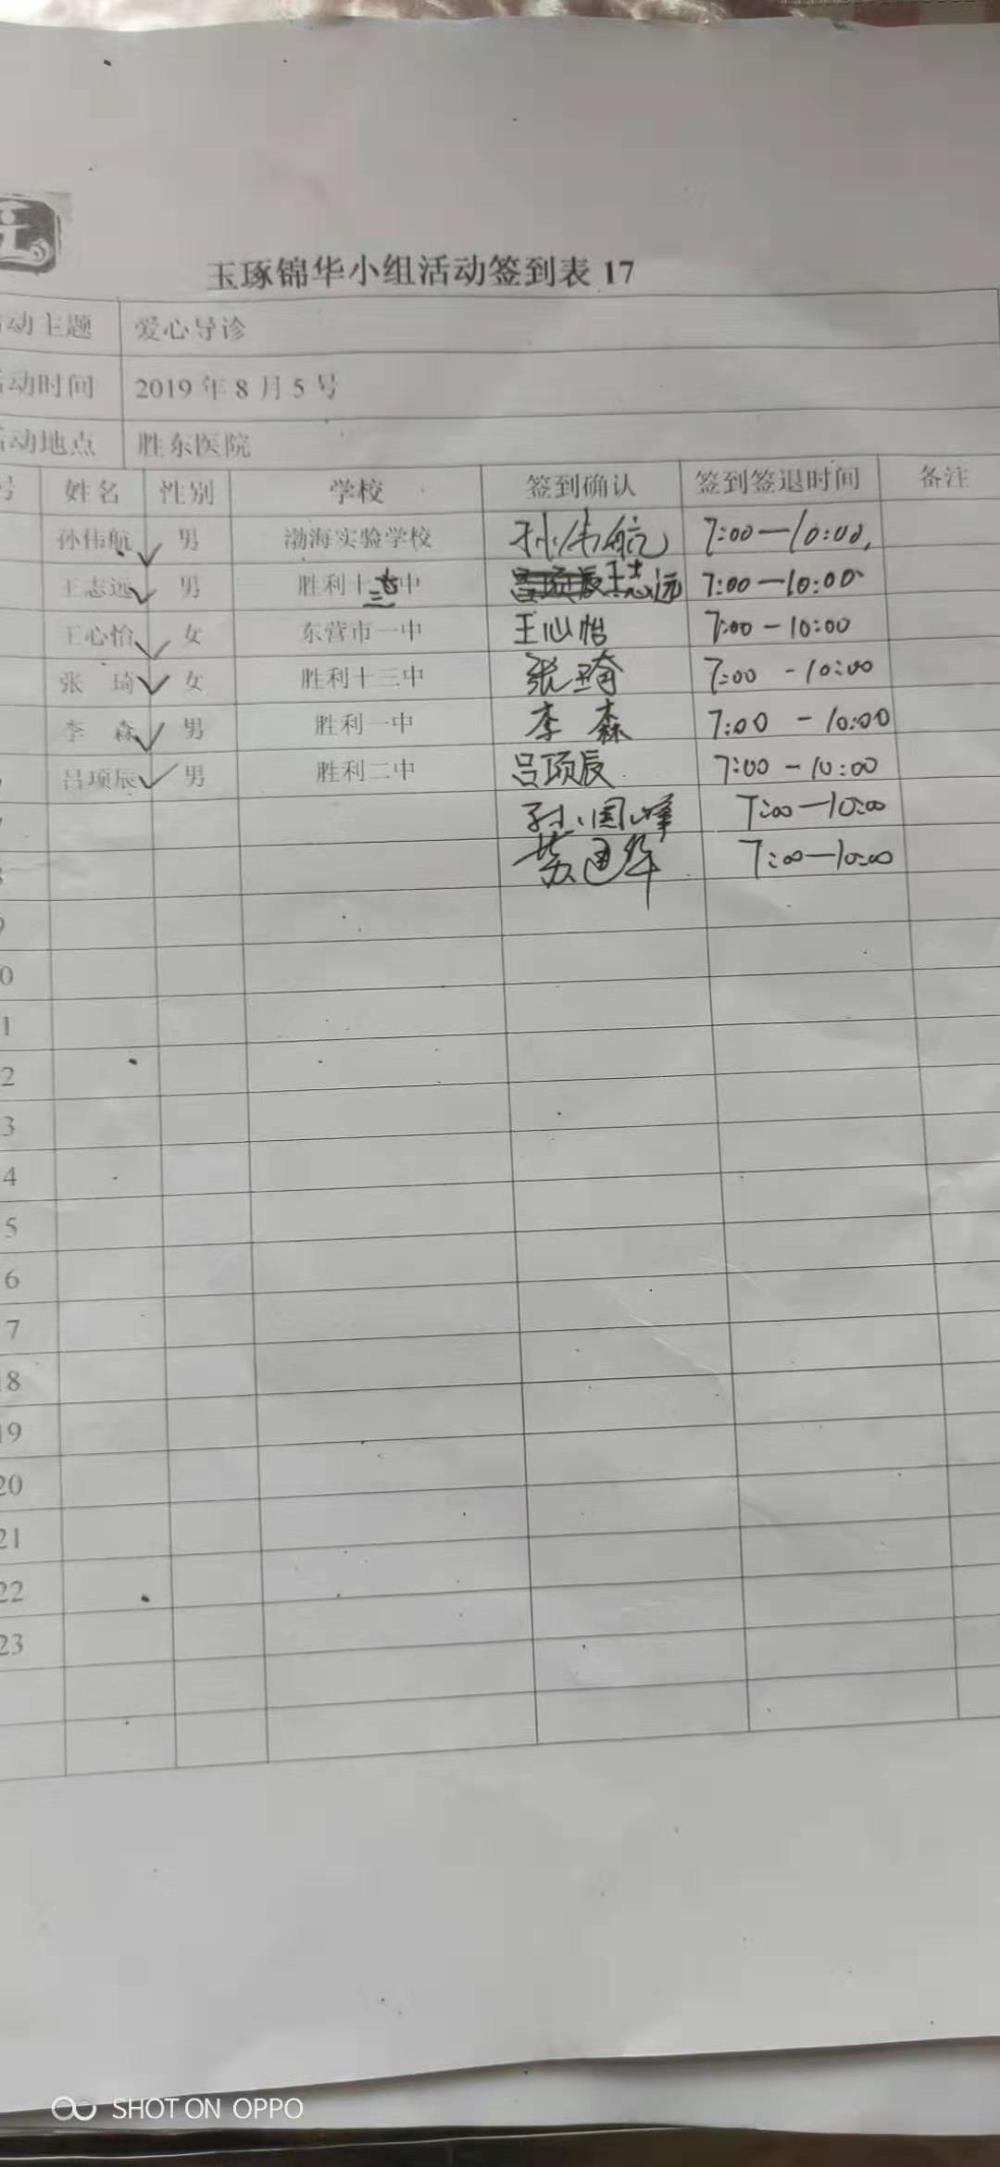 玉琢锦华小组活动签到表 17
动主题 爱心导诊
动时间 2019 年 8 月 5 号
动地点 胜东医院
号 姓名 性别 学校 签到确认 签到签退时间 备注
孙伟航 男 渤海实验学校 孙伟航 7:00—10:00
王志远 男 胜利十三中 王志远 7:00—10:00
王心怡 女 东营市一中 王心怡 7:00-10:00
张 琦 女 胜利十三中 张琦 7:00-10:00
李 森 男 胜利一中 李森 7:00-10:00
吕项辰 男 胜利二中 吕项辰 7:00-10:00
孙国峰 7:00—10:00
7:00—10:00
9
0
1
2
3
4
5
6
7
18
19
20
21
22
23
SHOT ON OPPO